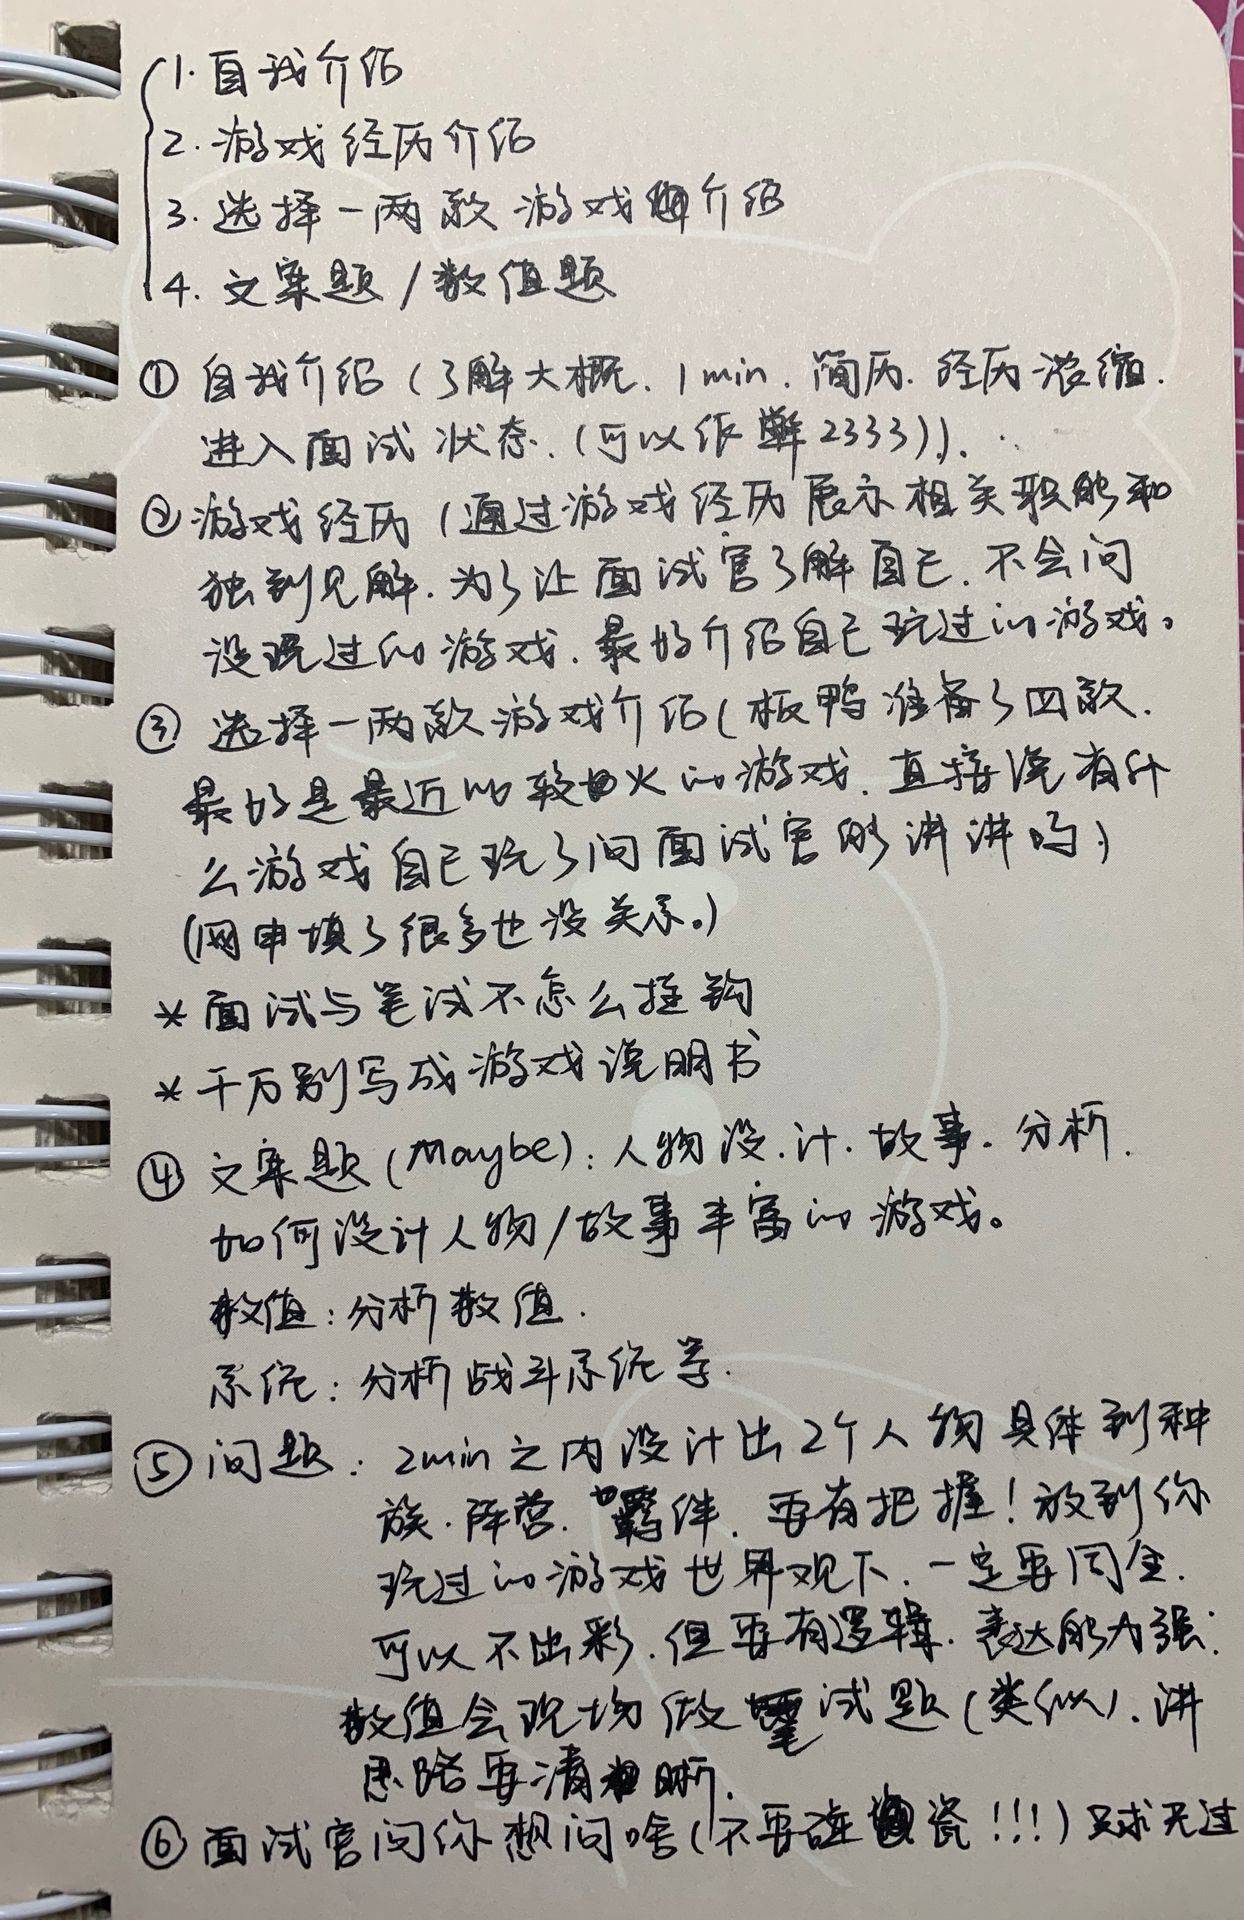 1. 自我介绍
2. 游戏经历介绍
3. 选择一两款游戏介绍
4. 文案题/数值题
① 自我介绍(了解大概. 1min. 简历. 经历浓缩.
进入面试状态. (可以很 2333)).
② 游戏经历(通过游戏经历展示相关职能和
独到见解. 为了让面试官了解自己. 不会问
没玩过的游戏. 最好介绍自己玩过的游戏。
③ 选择一两款游戏介绍(板鸭准备了四款.
最好是最近比较火的游戏. 直接说有什
么游戏自己玩了问面试官能讲讲吗)
(网申填了很多也没关系。)
* 面试与笔试不怎么挂钩
* 千万别写成游戏说明书
④ 文案题(Maybe): 人物设计. 故事. 分析.
如何设计人物/故事丰富的游戏。
数值: 分析数值.
系统: 分析战斗系统等.
⑤ 问题: 2min之内设计出2个人物具体到种
族. 阵营. 要有把握! 放到你
玩过的游戏世界观下. 一定要周全.
可以不出彩. 但要有逻辑. 表达能力强;
数值会现场做笔试题(类似). 讲
思路要清晰.
⑥ 面试官问你想问啥(不要碰瓷!!!)只求无过